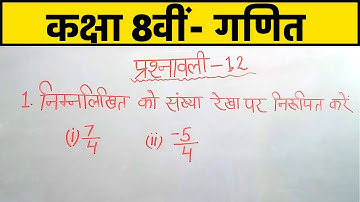 कक्षा 8वीं- गणित
प्रश्नावली-1.2
1. निम्नलिखित को संख्या रेखा पर निरूपित करें
(i) 7/4 (ii) -5/4